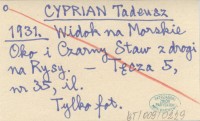 CYPRIAN Tadeusz
1931. Widok na Morskie
Oko i Czarny Staw z drogi
na Rysy. – Tęcza 5,
nr 35, il.
Tylko fot.